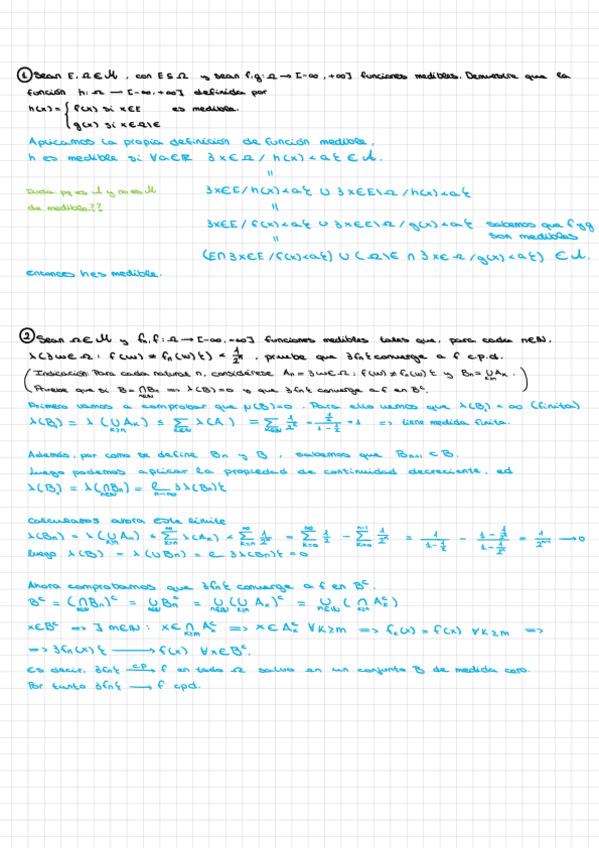 ① Sean E, Ω ∈ M, con E ⊆ Ω y sean f,g: Ω → [-∞, +∞] funciones medibles. Demuestre que la
función h: Ω → [-∞, +∞] definida por
h(x) = { f(x) si x∈E es medible.
g(x) si x∈Ω\E
Aplicamos la propia definición de función medible,
h es medible si ∀a∈ℝ {x∈Ω / h(x)<a} ∈ A.
=
Duda pq es A y no es M {x∈E/h(x)<a} ∪ {x∈E\Ω /h(x)<a}
de medible?? =
{x∈E/f(x)<a} ∪ {x∈E\Ω /g(x)<a} sabemos que f y g
= son medibles
(E∩{x∈E/f(x)<a}) ∪ (Ω\E ∩ {x∈Ω/g(x)<a}) ∈ A.
entonces h es medible.
② Sean Ω∈M y fn, f: Ω → [-∞, +∞] funciones medibles tales que, para cada n∈N,
λ({w∈Ω : f(w) ≠ fn(w)}) < 1/2ⁿ, pruebe que {fn} converge a f c.p.d.
(Indicación: Para cada natural n, considérese An = {w∈Ω : f(w) ≠ fn(w)} y Bn = ∪ Ak.
Pruebe que si B = ∩Bn ⟹ λ(B)=0 y que {fn} converge a f en Bᶜ.)
Primero vamos a comprobar que μ(B)=0. Para ello vemos que λ(B₁) < ∞ (finita)
λ(B₁) = λ(∪Ak) ≤ Σ λ(A) = Σ 1/2ᵏ = 1/2 / 1-1/2 = 1 ⟹ tiene medida finita.
Además, por como se define Bn y B, sabemos que Bn+1 ⊂ B.
Luego podemos aplicar la propiedad de continuidad decreciente, ed
λ(B) = λ(∩Bn) = l {λ(Bn)}
Calculamos ahora este límite
λ(Bn) = λ(∪An) ≤ Σ λ(An) < Σ 1/2ᵏ = Σ 1/2 - Σ 1/2ᵏ = 1/1-1/2 - 1-1/2ⁿ/1-1/2 = 1/2ⁿ⁻¹ → 0
luego λ(B) = λ(∪Bn) = l {λ(Bn)} = 0
Ahora comprobamos que {fn} converge a f en Bᶜ.
Bᶜ = (∩Bn)ᶜ = ∪Bnᶜ = ∪(∪Ak)ᶜ = ∪(∩Akᶜ)
x∈Bᶜ ⟹ ∃ m∈N : x∈∩Akᶜ ⟹ x∈Akᶜ ∀k≥m ⟹ fk(x) = f(x) ∀k≥m ⟹
⟹ {fn(x)} → f(x) ∀x∈Bᶜ.
Es decir, {fn} c.p. → f en todo Ω salvo en un conjunto B de medida cero.
Por tanto {fn} → f cpd.